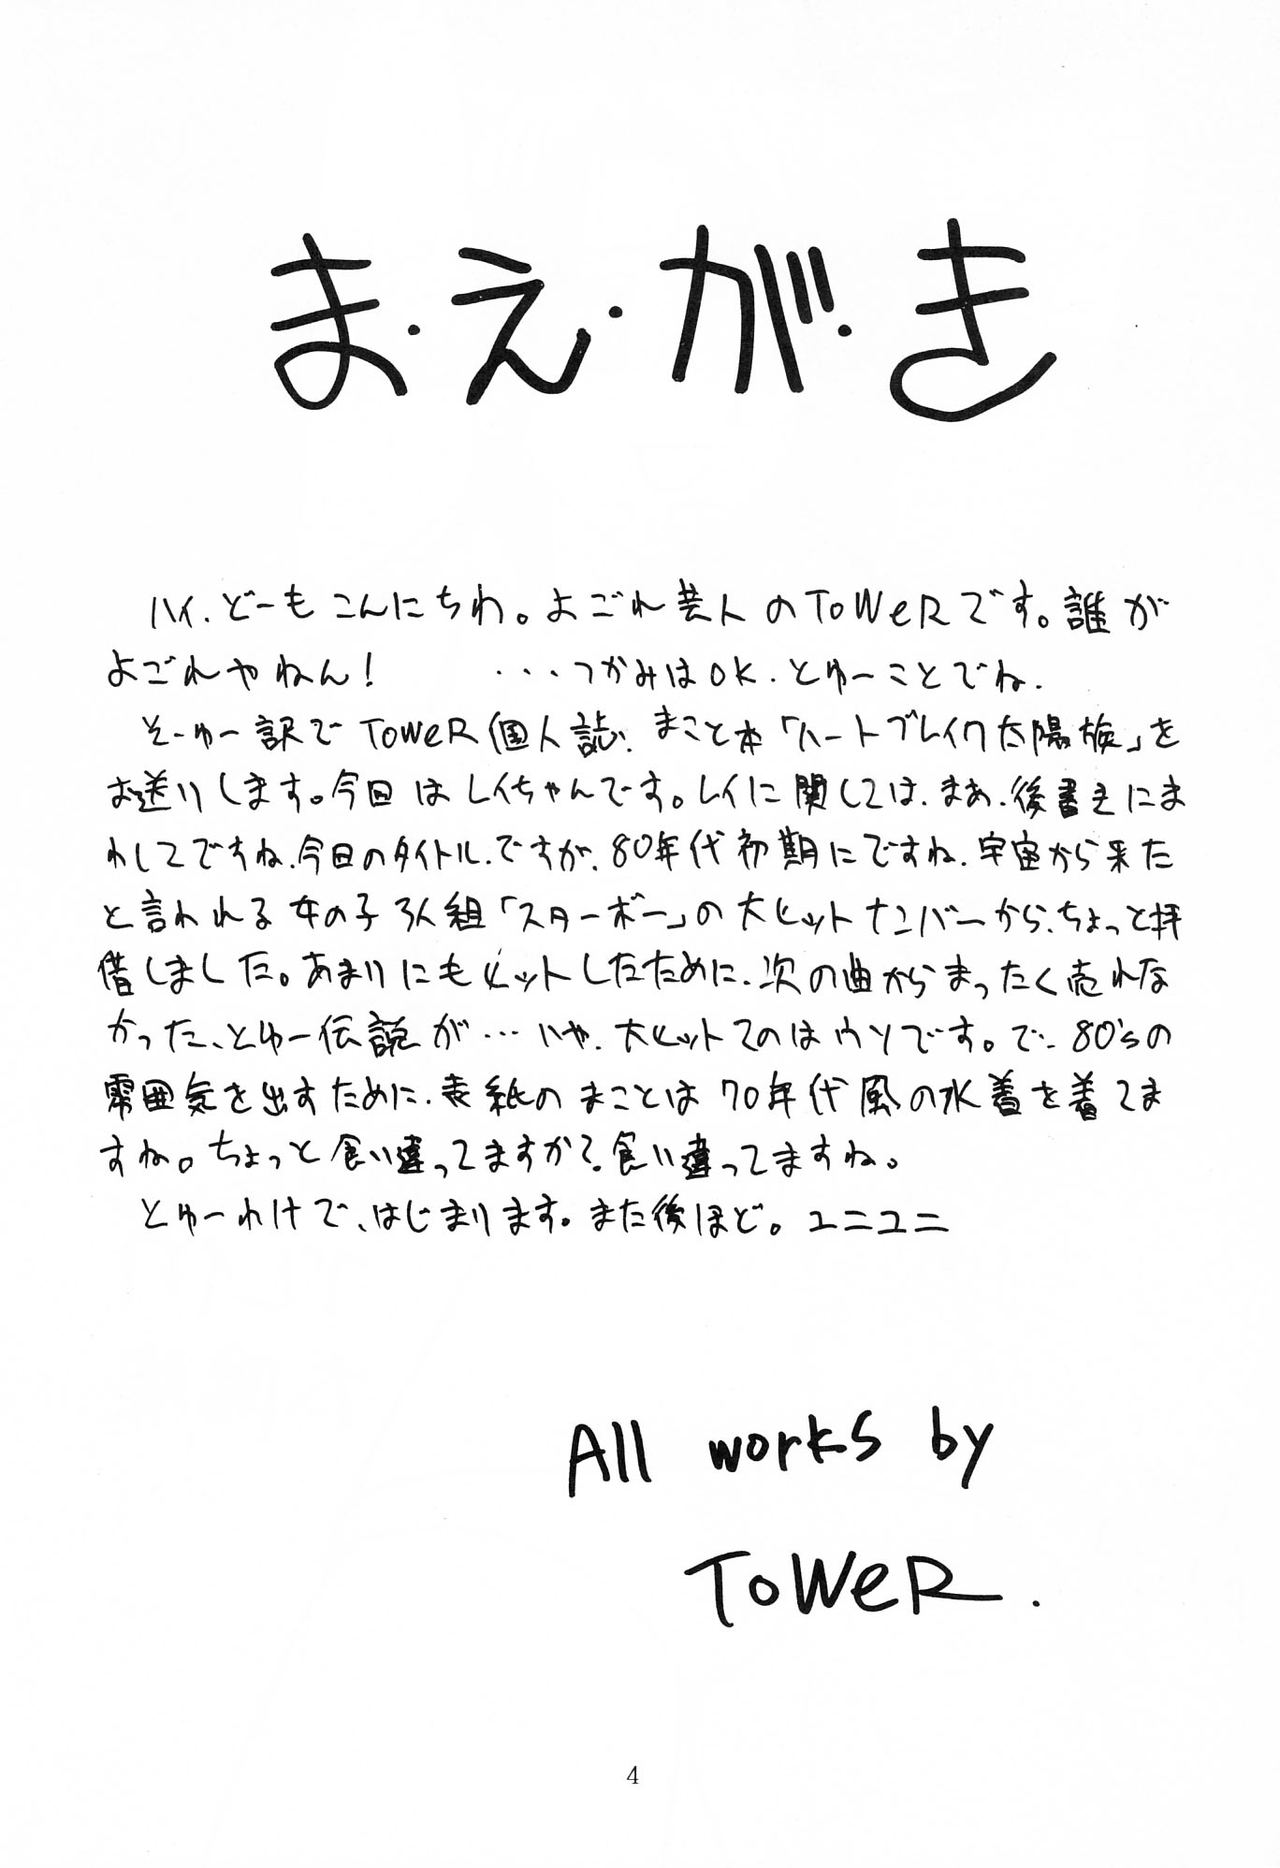 ま・え・が・き
ハイ、どーもこんにちわ。よごれ芸人のToWeRです。誰が
よごれやねん!　　・・・つかみはOK、とゆーことでね、
そーゆー訳でToWeR個人誌、まこと本「ハートブレイク太陽族」を
お送りします。今回はレイちゃんです。レイに関しては、まあ、後書きにま
わしてですね、今回のタイトル、ですが、80年代初期にですね、宇宙から来た
と言われる女の子3人組「スターボー」の大ヒットナンバーから、ちょっと拝
借しました。あまりにもヒットしたために、次の曲からまったく売れな
かった、とゆー伝説が・・・いや、大ヒットてのはウソです。で、80'sの
雰囲気を出すために、表紙のまことは70年代風の水着を着てま
すね。ちょっと食い違ってますか?食い違ってますね。
とゆーわけで、はじまります。また後ほど。ユニユニ
All works by
ToWeR.
4